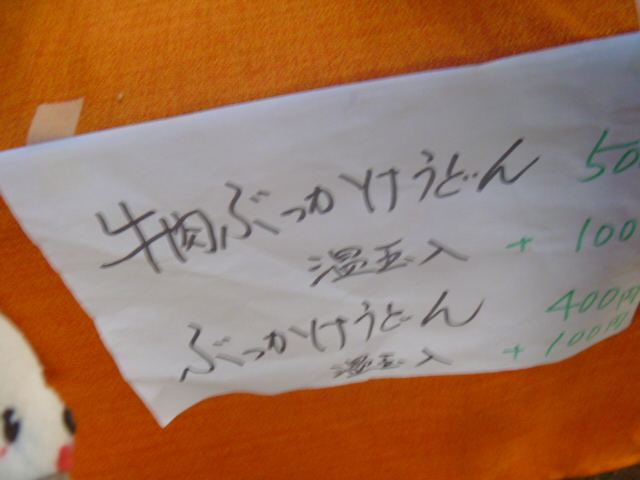 牛肉ぶっかけうどん 50
温玉入 + 100
ぶっかけうどん 400円
温玉入 + 100円